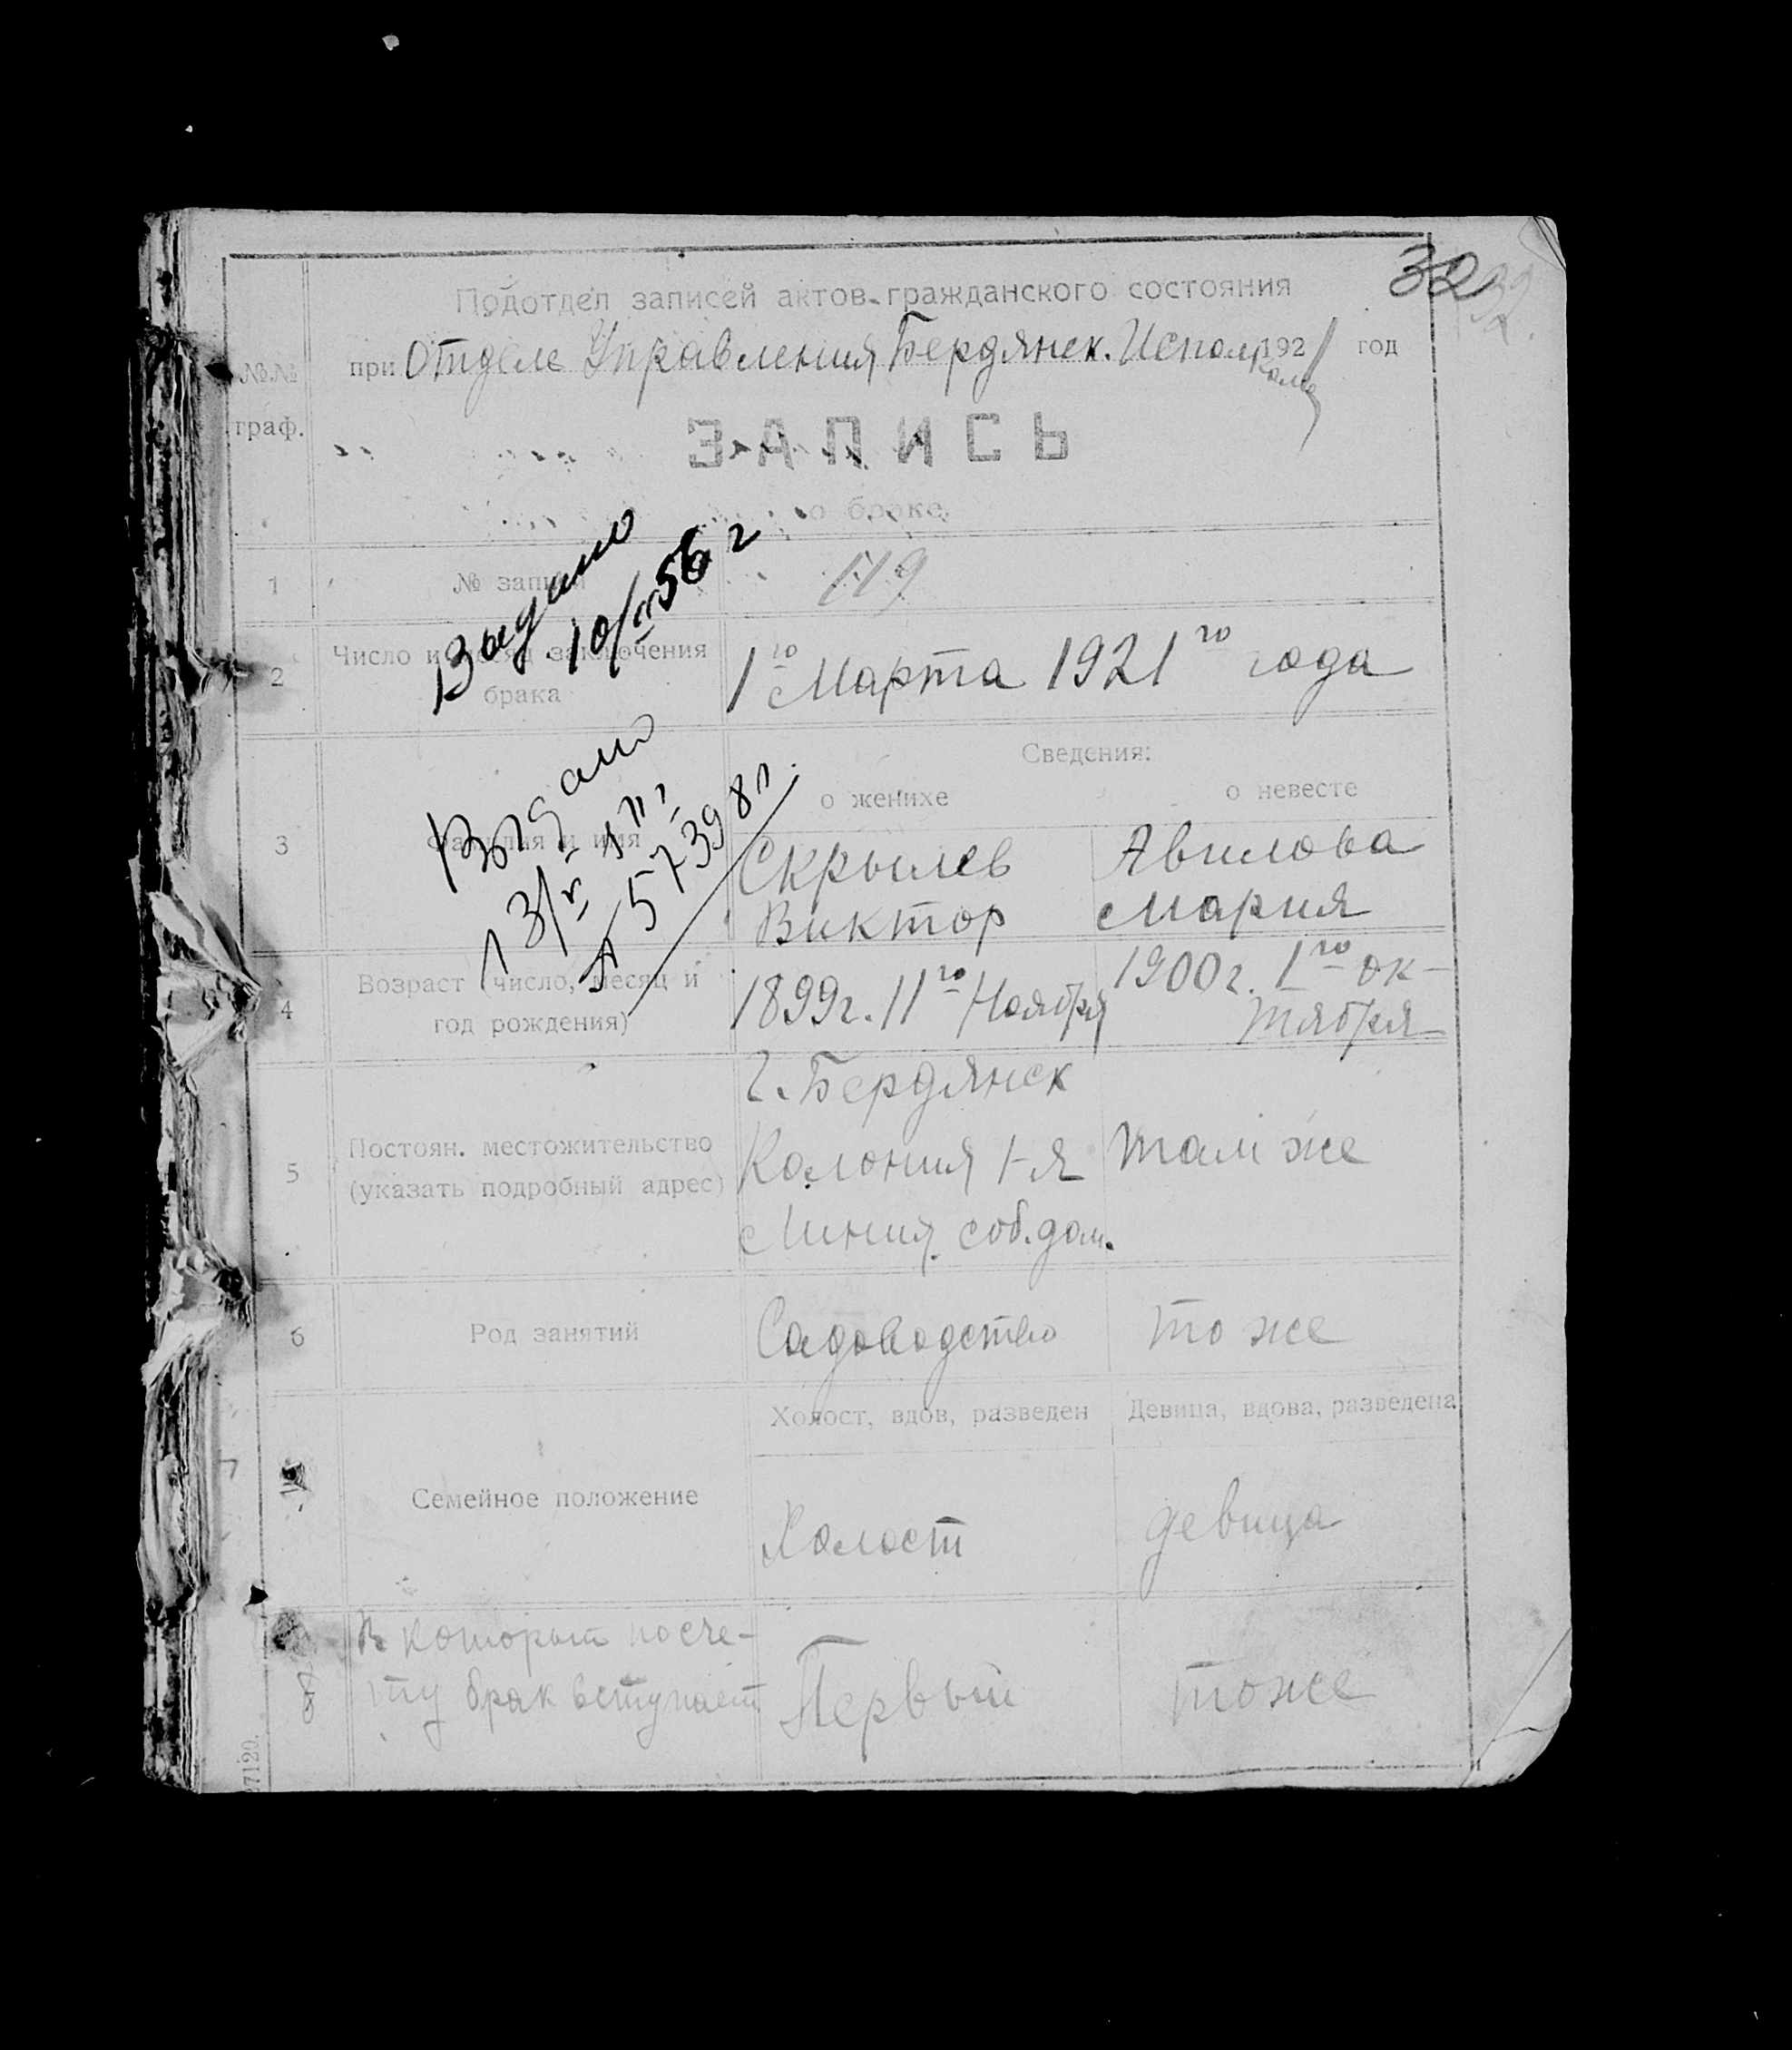 32 32.
Подотдел записей актов гражданского состояния
при Отделе Управления Бердянск. Исполкома 1921 год
№№
граф.
ЗАПИСЬ
о браке.
1 № записи 119
2 Число и месяц заключения 1го Марта 1921го года
брака
Выдано
10/II 56 г
Сведения:
о женихе о невесте
3 Фамилия и имя Скрылев Авилова
Виктор Мария
Выдано
4 Возраст (число, месяц и 1899г. 11го Ноября 1900г. 1го ок-
год рождения) тября
г. Бердянск
5 Постоян. местожительство Колония 1-я там же
(указать подробный адрес) Линия соб. дом.
6 Род занятий Садоводство то же
Холост, вдов, разведен Девица, вдова, разведена
7 Семейное положение Холост девица
8 В который по сче- Первый тоже
ту брак вступает
27120.